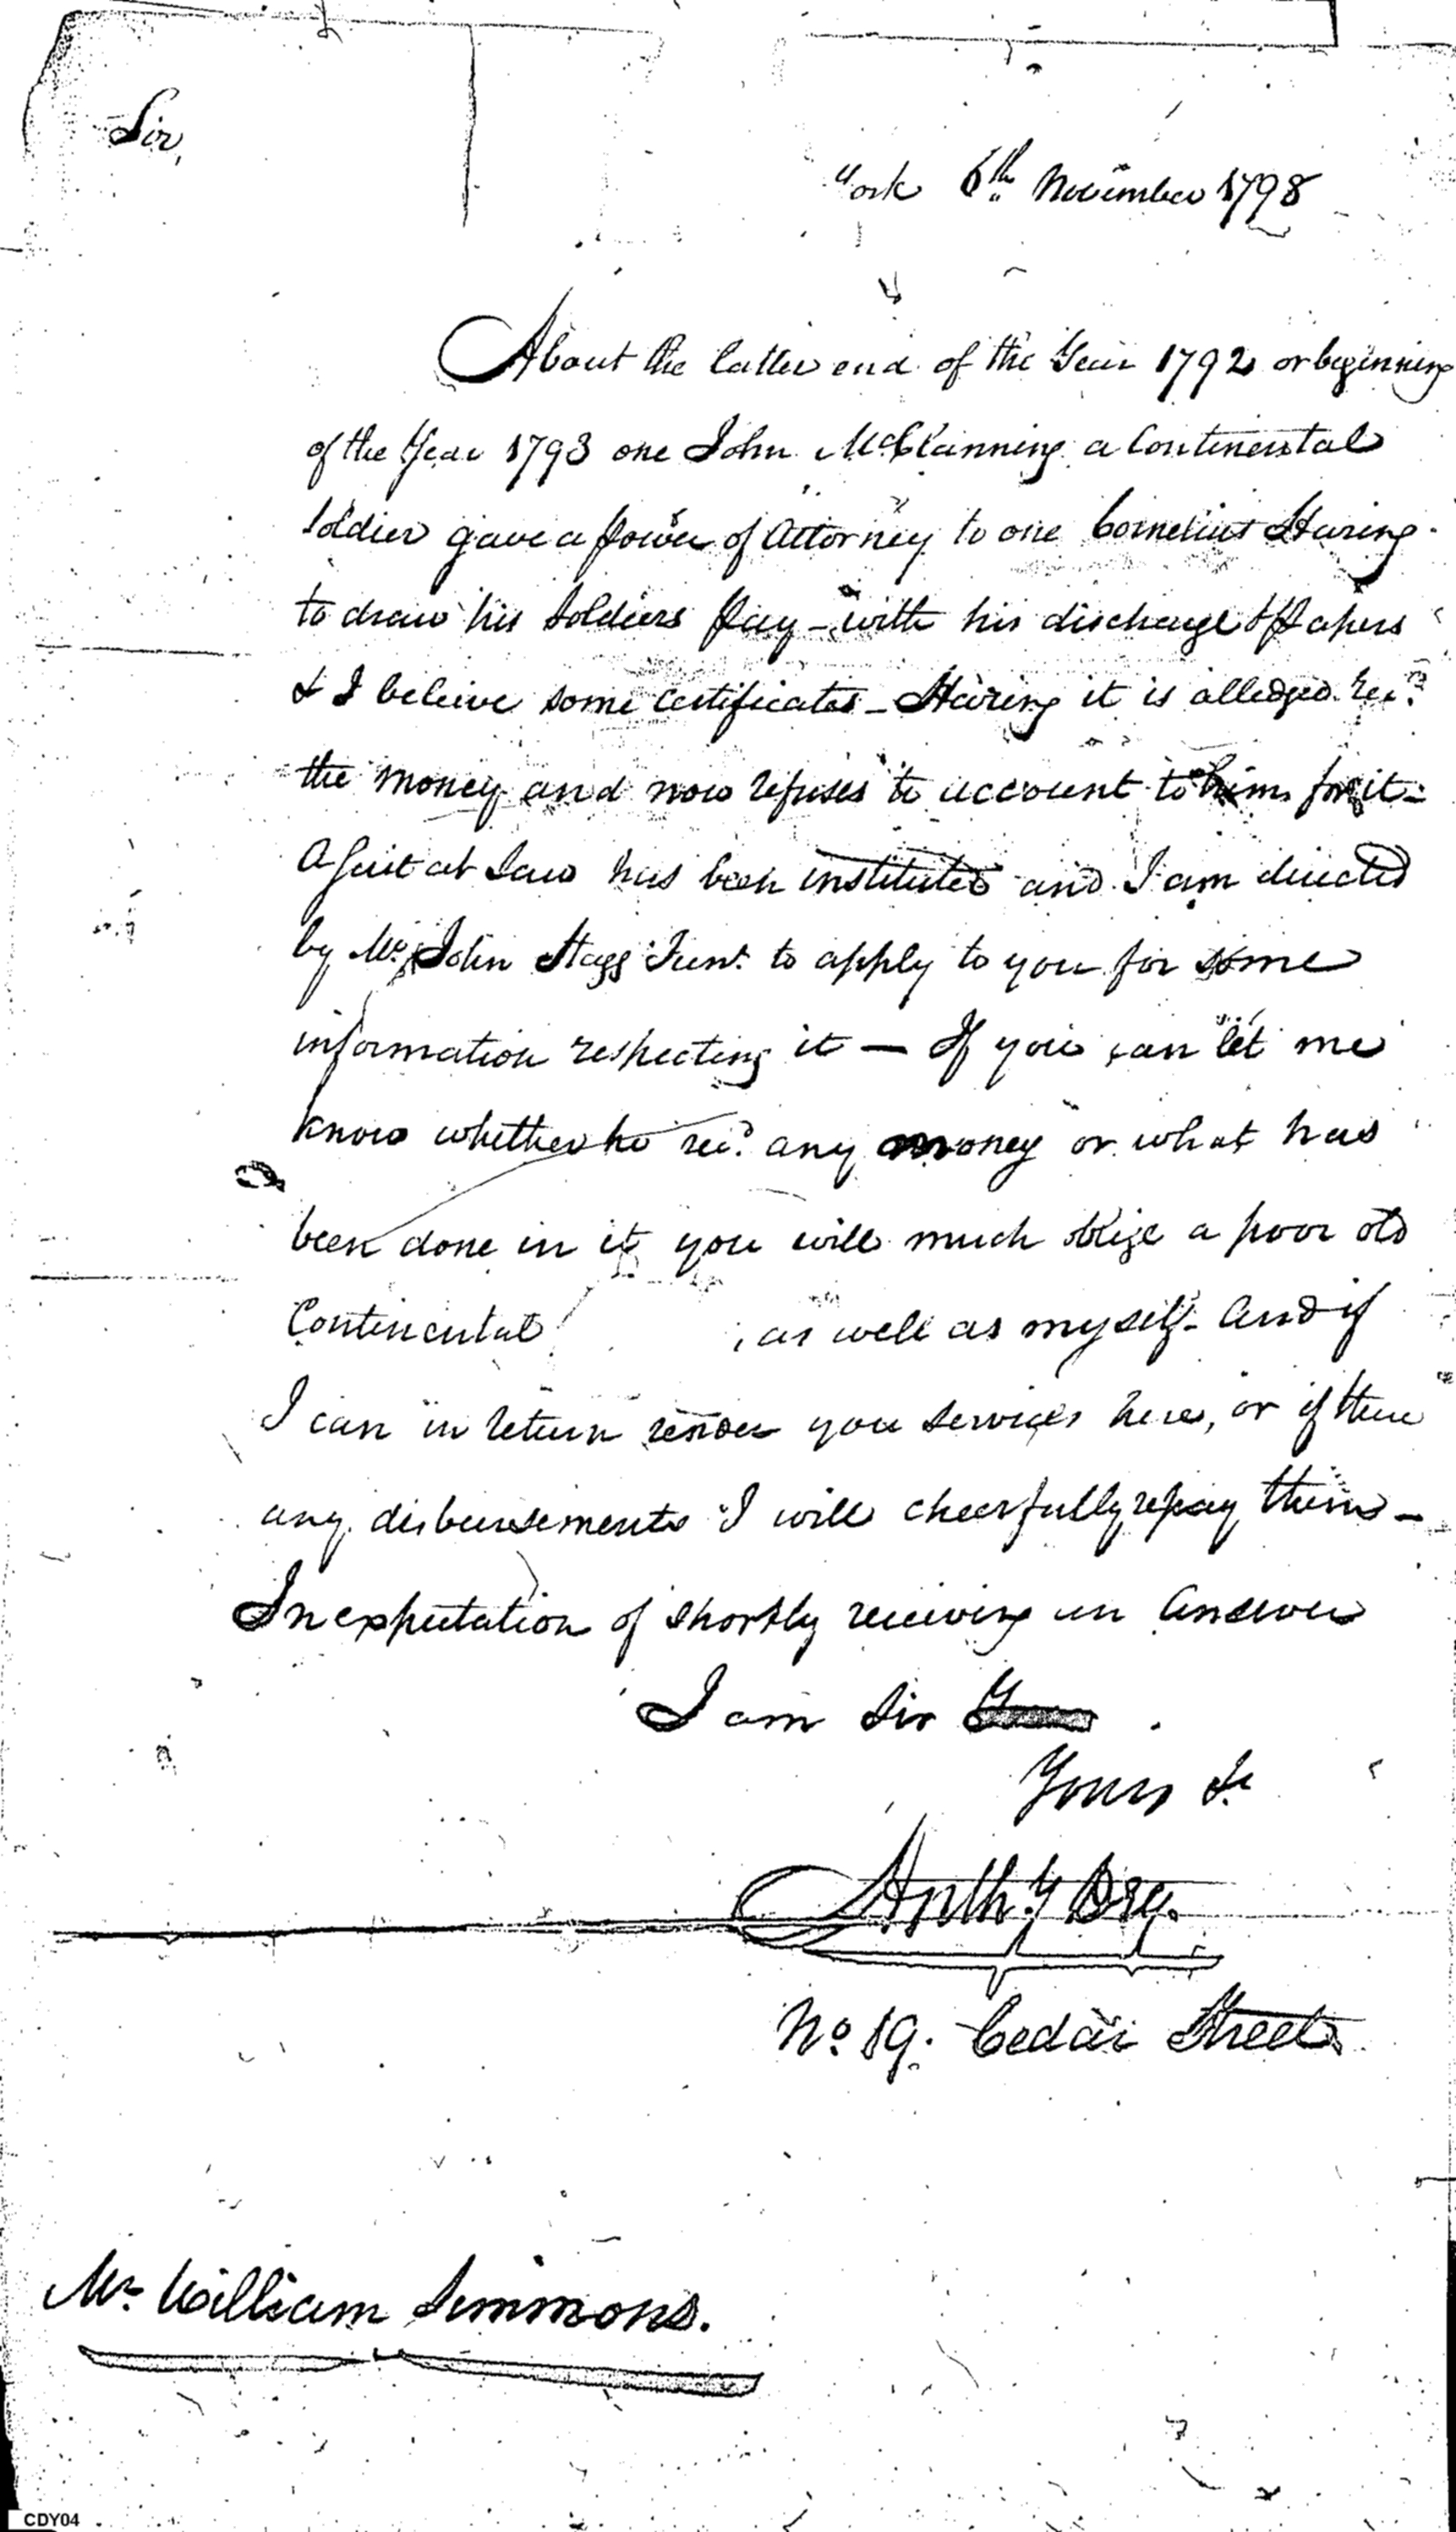 Sir,
York 6th November 1798
About the latter end of the Year 1792 or beginning
of the Year 1793 one John McClanning a Continental
Soldier gave a power of Attorney to one Cornelius Haring
to draw his Soldiers Pay - with his discharge & Papers
& I beleive some Certificates - Haring it is alledged recd
the money and now refuses to account to him for it -
A Suit at Law has been instituted and I am directed
by Mr John Stagg Junr. to apply to you for some
information respecting it — If you can let me
know whether he recd. any money or what has
been done in it you will much oblige a poor old
Continental , as well as myself - And if
I can in return render you services here, or if there
any disbursements I will cheerfully repay them -
In expectation of shortly receiving an Answer
I am Sir
Yours &c
Anthy Dey.
No. 19. Cedar Street
Mr. William Simmons.
CDY04